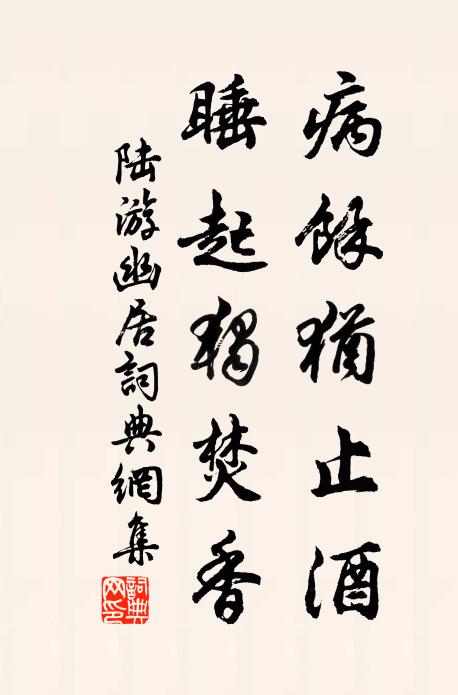 病餘猶止酒
睡起獨焚香
陆游幽居詞典網集
詞典網印